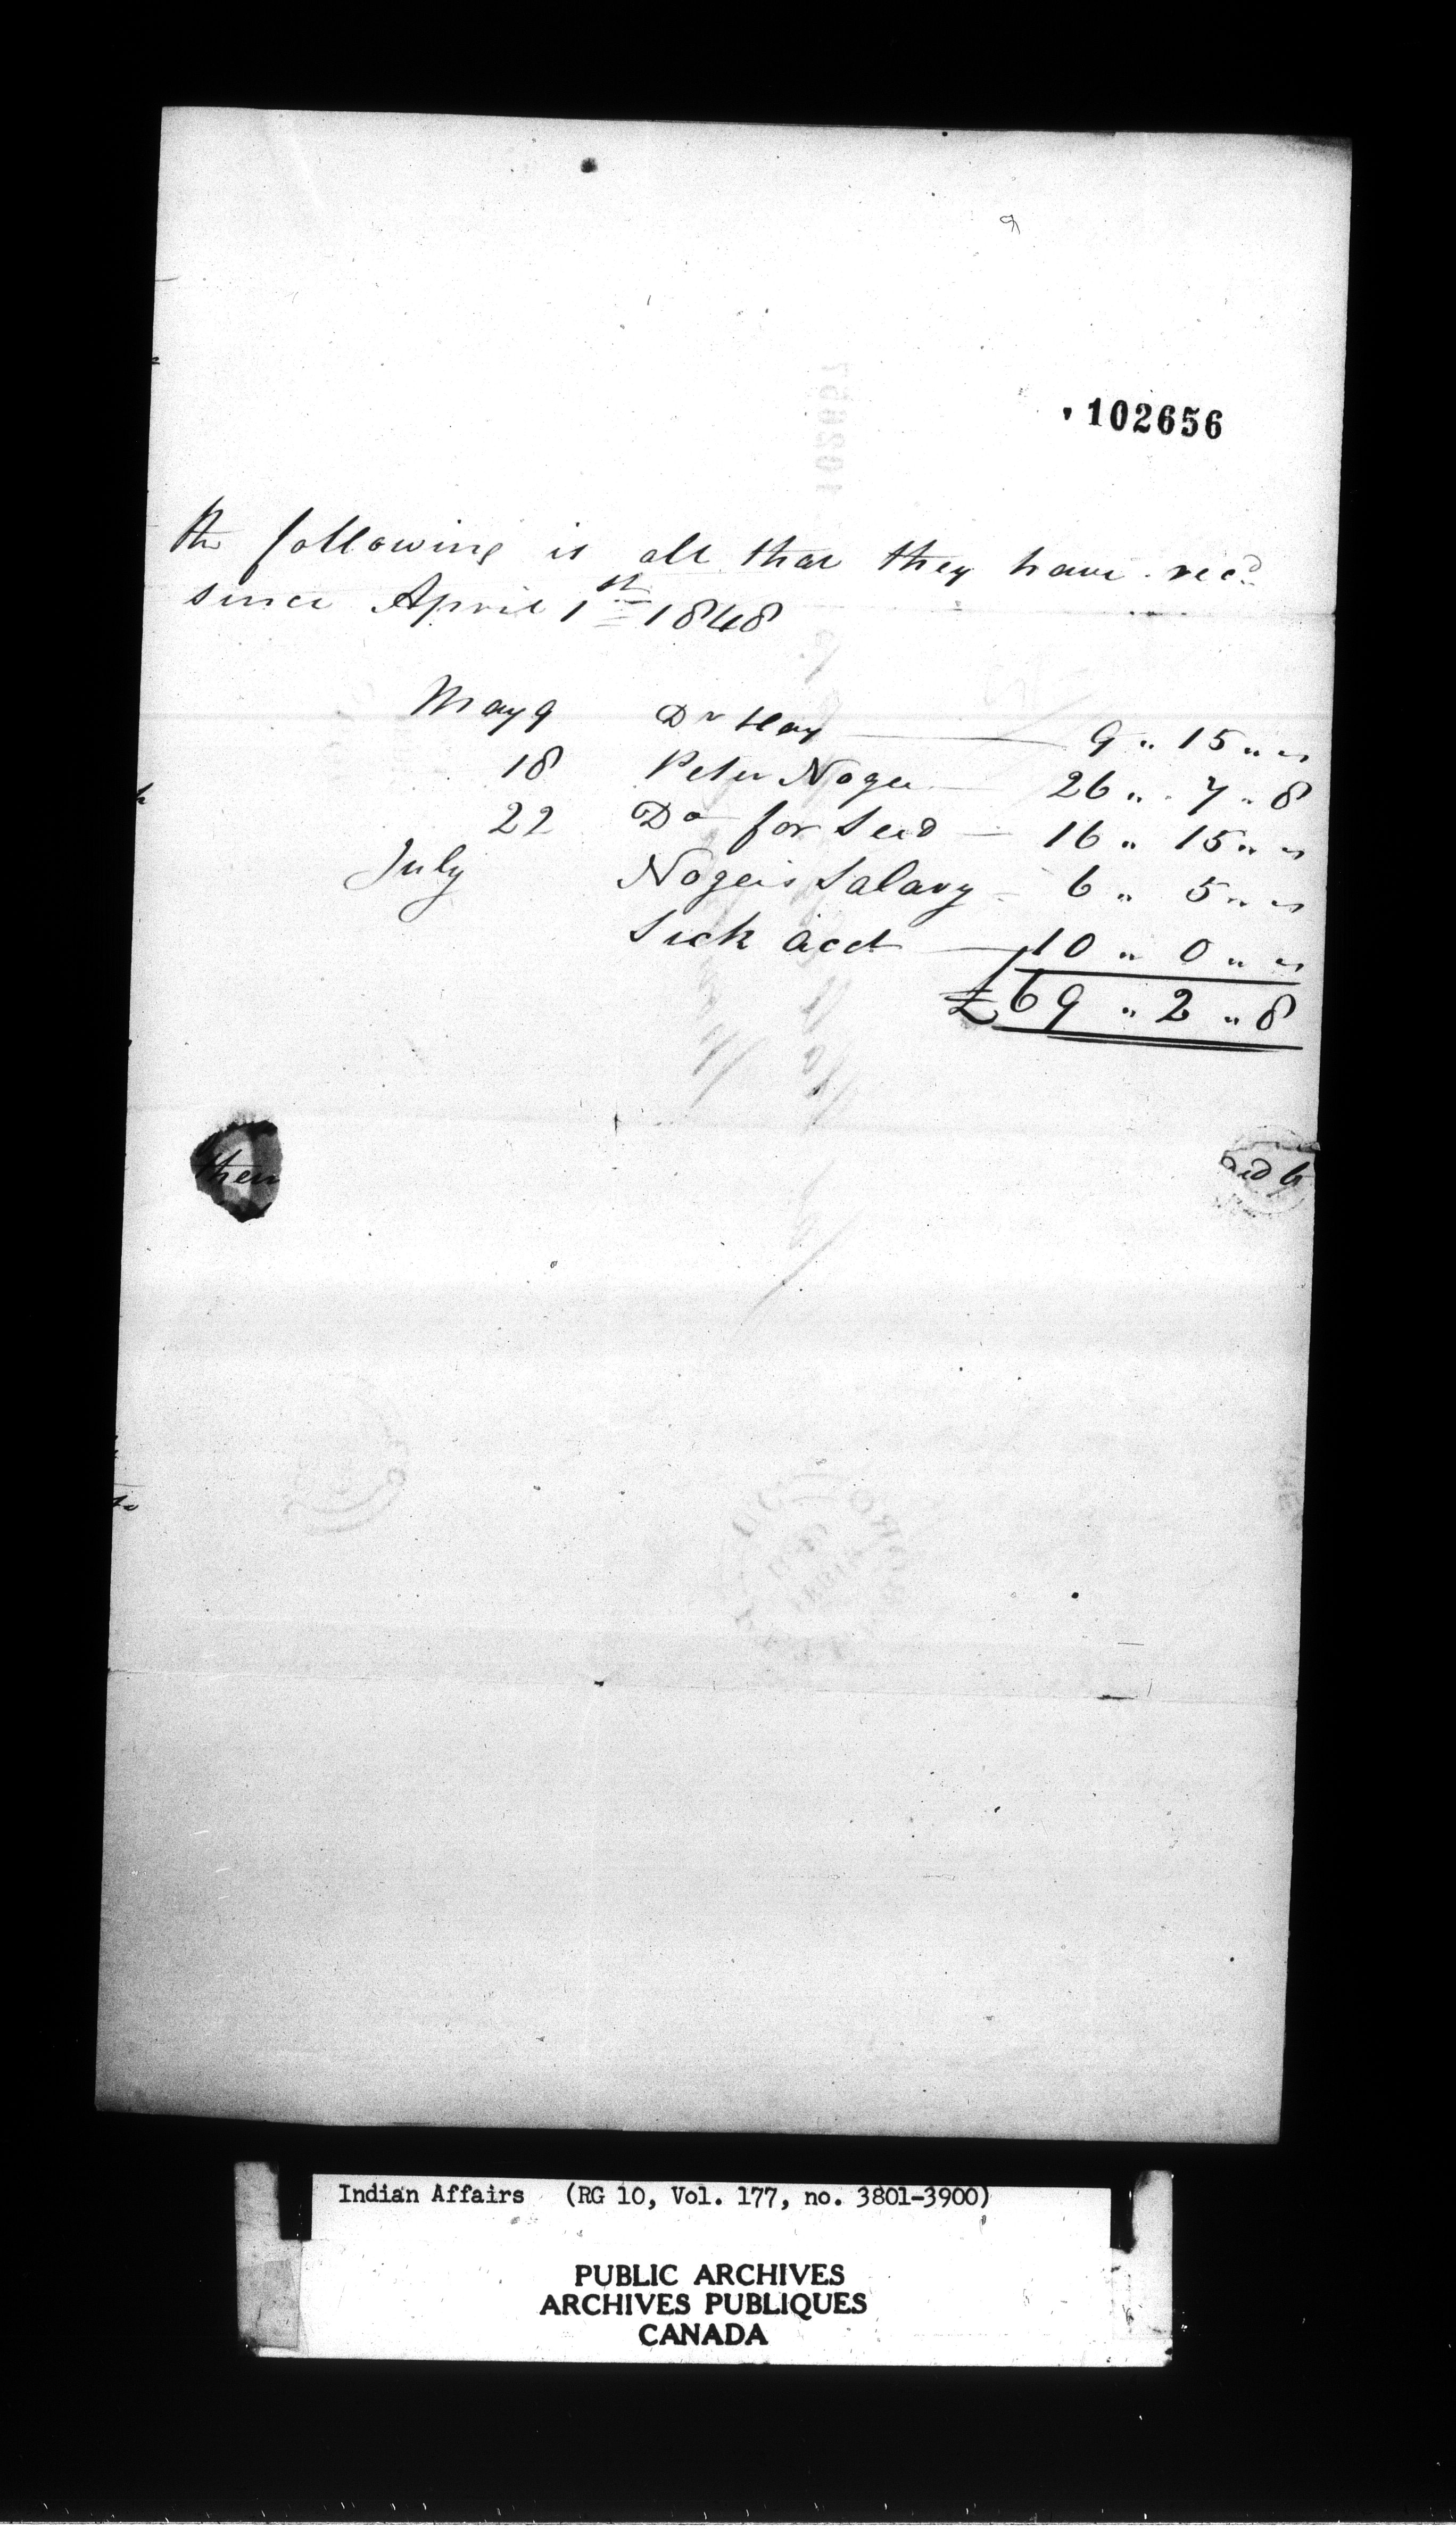 102656
the following is all that they have rec^d
since April 1^st 1848
May 9 D^r Hay 9 " 15 " "
18 Peter Noger 26 " 7 " 8
22 D^o for Seed 16 " 15 " "
July Noger's Salary 6 " 5 " "
Sick acct 10 " 0 " "
£69 " 2 " 8
them
Indian Affairs (RG 10, Vol. 177, no. 3801-3900)
PUBLIC ARCHIVES
ARCHIVES PUBLIQUES
CANADA